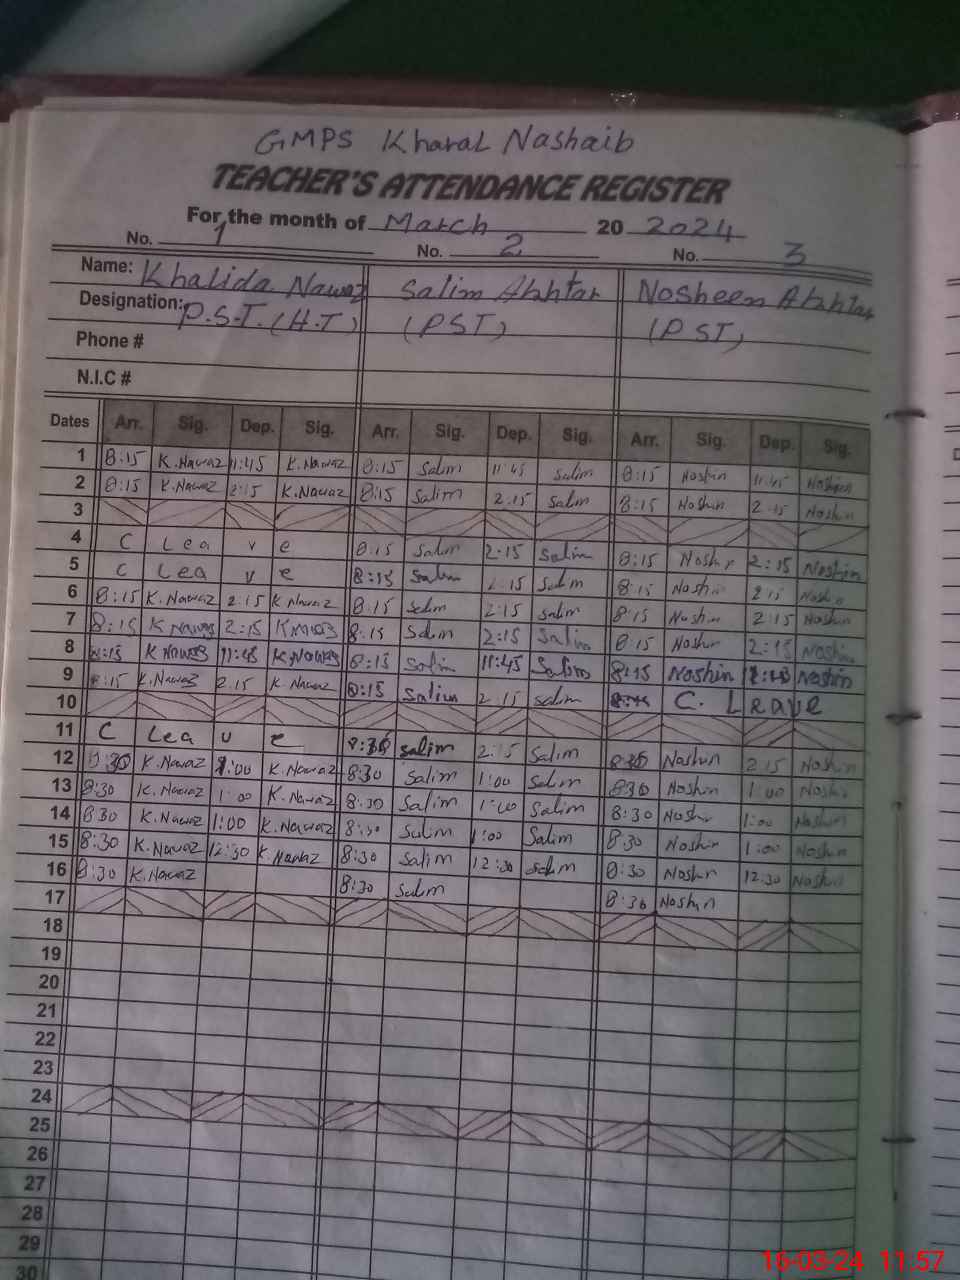 GMPS Kharal Nashaib
TEACHER'S ATTENDANCE REGISTER
For the month of March 20 2024
No. 1 No. 2 No. 3
Name: Khalida Nawaz Salim Akhtar Nosheen Akhtar
Designation: P.S.T. (H.T) (PST) (PST)
Phone #
N.I.C #
Dates Arr. Sig. Dep. Sig. Arr. Sig. Dep. Sig. Arr. Sig. Dep. Sig.
1 8:15 K.Nawaz 11:45 K.Nawaz 8:15 Salim 11:45 Salim 8:15 Noshin 11:45 Noshin
2 8:15 K.Nawaz 2:15 K.Nawaz 8:15 Salim 2:15 Salim 8:15 Noshin 2:15 Noshin
3
4 C Leave 8:15 Salim 2:15 Salim 8:15 Noshin 2:15 Noshin
5 C Leave 8:15 Salim 2:15 Salim 8:15 Noshin 2:15 Noshin
6 8:15 K.Nawaz 2:15 K Nawaz 8:15 Salim 2:15 Salim 8:15 Noshin 2:15 Noshin
7 8:15 K Nawaz 2:15 K Nawaz 8:15 Salim 2:15 Salim 8:15 Noshin 2:15 Noshin
8 8:15 K Nawaz 11:45 K.Nawaz 8:15 Salim 11:45 Salim 8:15 Noshin Noshin
9 8:15 K.Nawaz 2:15 K.Nawaz 8:15 Salim 2:15 Salim C. Leave
10
11 C Leave 8:30 Salim 2:15 Salim 8:30 Noshin 2:15 Noshin
12 8:30 K.Nawaz 1:00 K.Nawaz 8:30 Salim 1:00 Salim 8:30 Noshin 1:00 Noshin
13 8:30 K.Nawaz 1:00 K.Nawaz 8:30 Salim 1:00 Salim 8:30 Noshin 1:00 Noshin
14 8:30 K.Nawaz 1:00 K.Nawaz 8:30 Salim 1:00 Salim 8:30 Noshin 1:00 Noshin
15 8:30 K.Nawaz 12:30 K.Nawaz 8:30 Salim 12:30 Salim 8:30 Noshin 12:30 Noshin
16 8:30 K.Nawaz 8:30 Salim 8:30 Noshin
17
18
19
20
21
22
23
24
25
26
27
28
29
30
16-03-24 11:57